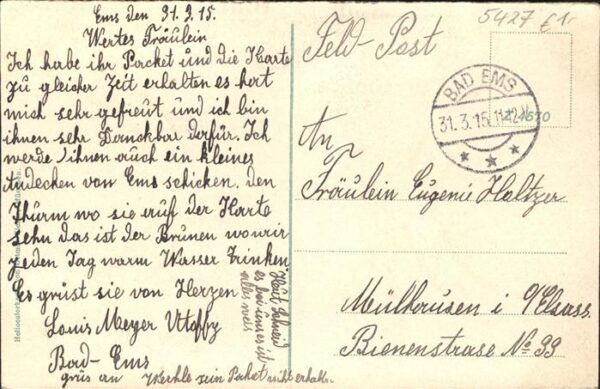 Ems den 31.3.15.
Wertes Fräulein
Ich habe ihr Packet und die Karte
zu gleicher Zeit erhalten es hert
mich sehr gefreut und ich bin
ihnen sehr Danckbar derfür. Ich
werde ihnen auch ein kleines
Andecken von Ems schicken. den
Thurm wo sie auf der Karte
sehn das ist der Brünen wo wir
jeden Tag warm Wasser Trinken.
Es grüst sie von Herzen
Louis Meyer
Bad-Ems
grüs an sein Packet nicht erhalten.
Heut Schneid
es bei uns
alles weis
Feld-Post
5427
BAD EMS
31.3.15.11-12V
* * *
An
Fräulein Eugenie Holtzer
Mülhausen i/Elsass.
Bienenstrase No 39